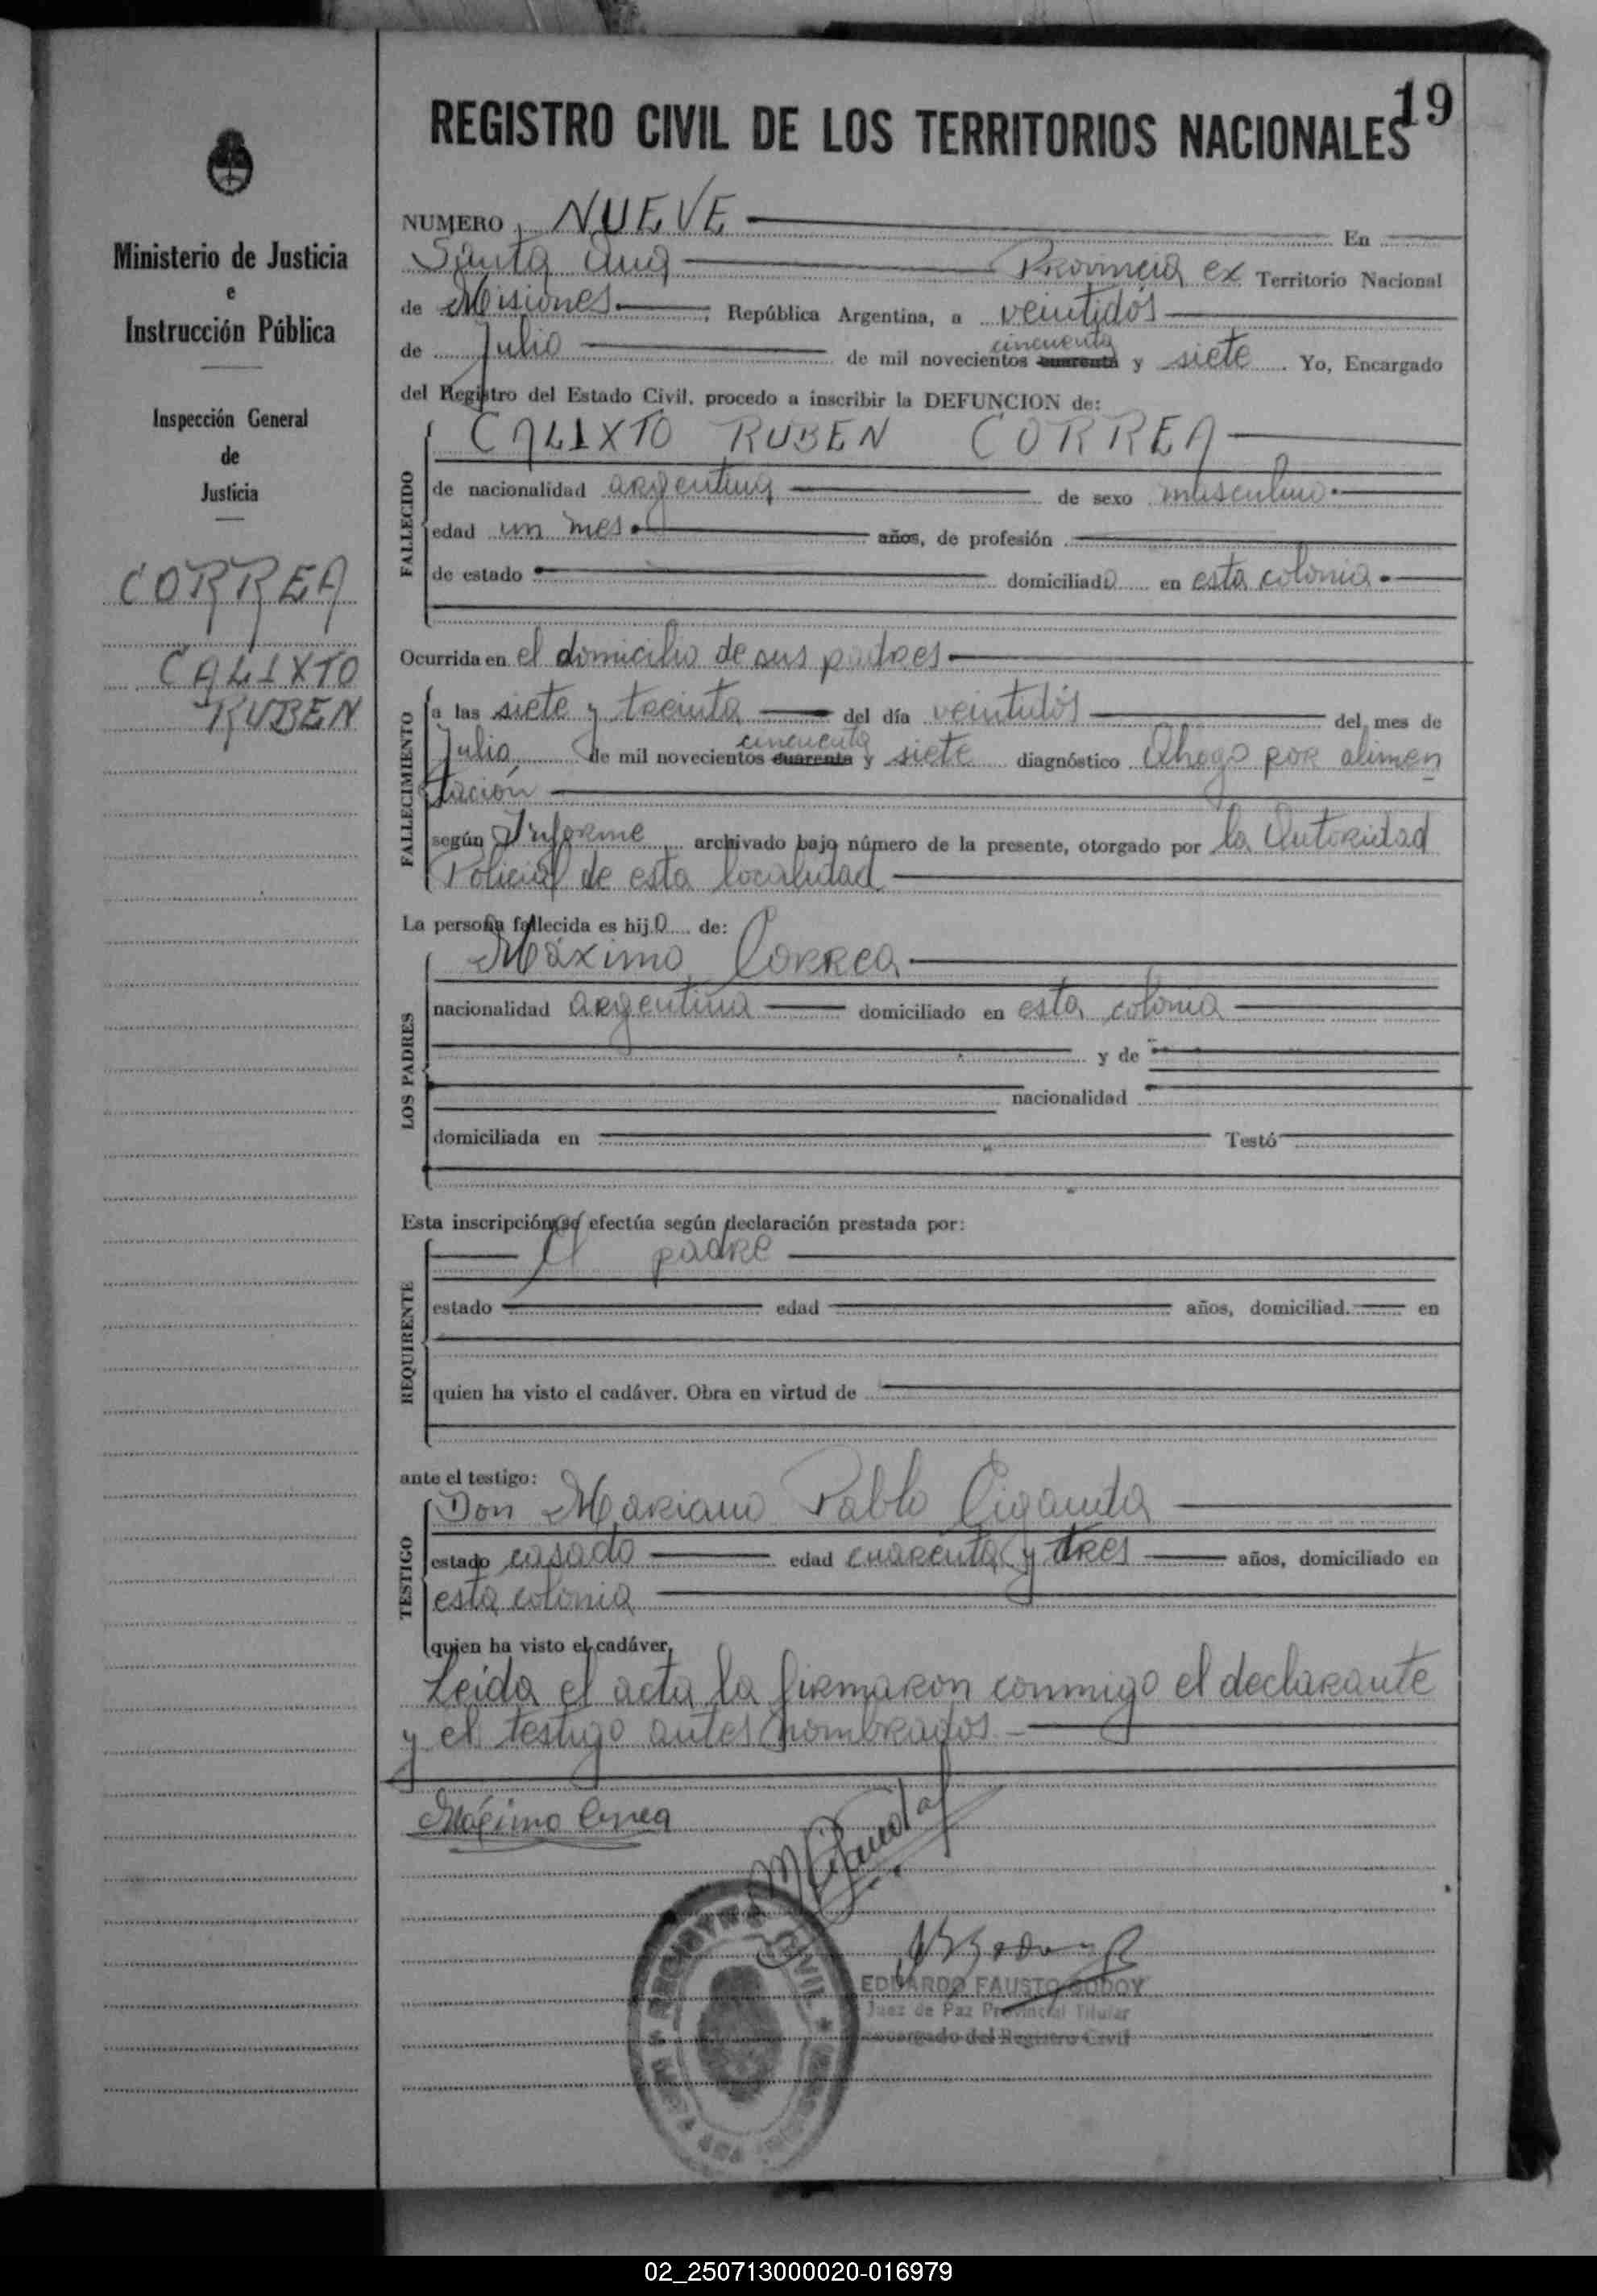 19
REGISTRO CIVIL DE LOS TERRITORIOS NACIONALES
Ministerio de Justicia
e
Instrucción Pública
Inspección General
de
Justicia
CORREA
CALIXTO
RUBEN
NUMERO NUEVE En
Santa Ana Provincia ex Territorio Nacional
de Misiones, República Argentina, a veintidós
de Julio de mil novecientos cuarenta cincuenta y siete. Yo, Encargado
del Registro del Estado Civil, procedo a inscribir la DEFUNCION de:
FALLECIDO
CALIXTO RUBEN CORREA
de nacionalidad argentina de sexo masculino.
edad un mes. años, de profesión
de estado domiciliado en esta colonia.
Ocurrida en el domicilio de sus padres
FALLECIMIENTO
a las siete y treinta del día veintidós del mes de
Julio de mil novecientos cuarenta cincuenta y siete diagnóstico Ahogo por alimen
tación
según Informe archivado bajo número de la presente, otorgado por la Autoridad
Policial de esta localidad
La persona fallecida es hijo de:
LOS PADRES
Máximo Correa
nacionalidad argentina domiciliado en esta colonia
y de
nacionalidad
domiciliada en Testó
Esta inscripción se efectúa según declaración prestada por:
REQUIRENTE
el padre
estado edad años, domiciliad. en
quien ha visto el cadáver. Obra en virtud de
ante el testigo:
TESTIGO
Don Mariano Pablo Ciganda
estado casado edad cuarenta y tres años, domiciliado en
esta colonia
quien ha visto el cadáver.
Leida el acta la firmaron conmigo el declarante
y el testigo antes nombrados.
Máximo Correa
EDUARDO FAUSTO GODOY
Juez de Paz Provincial Titular
Encargado del Registro Civil
REGISTRO CIVIL
02_250713000020-016979